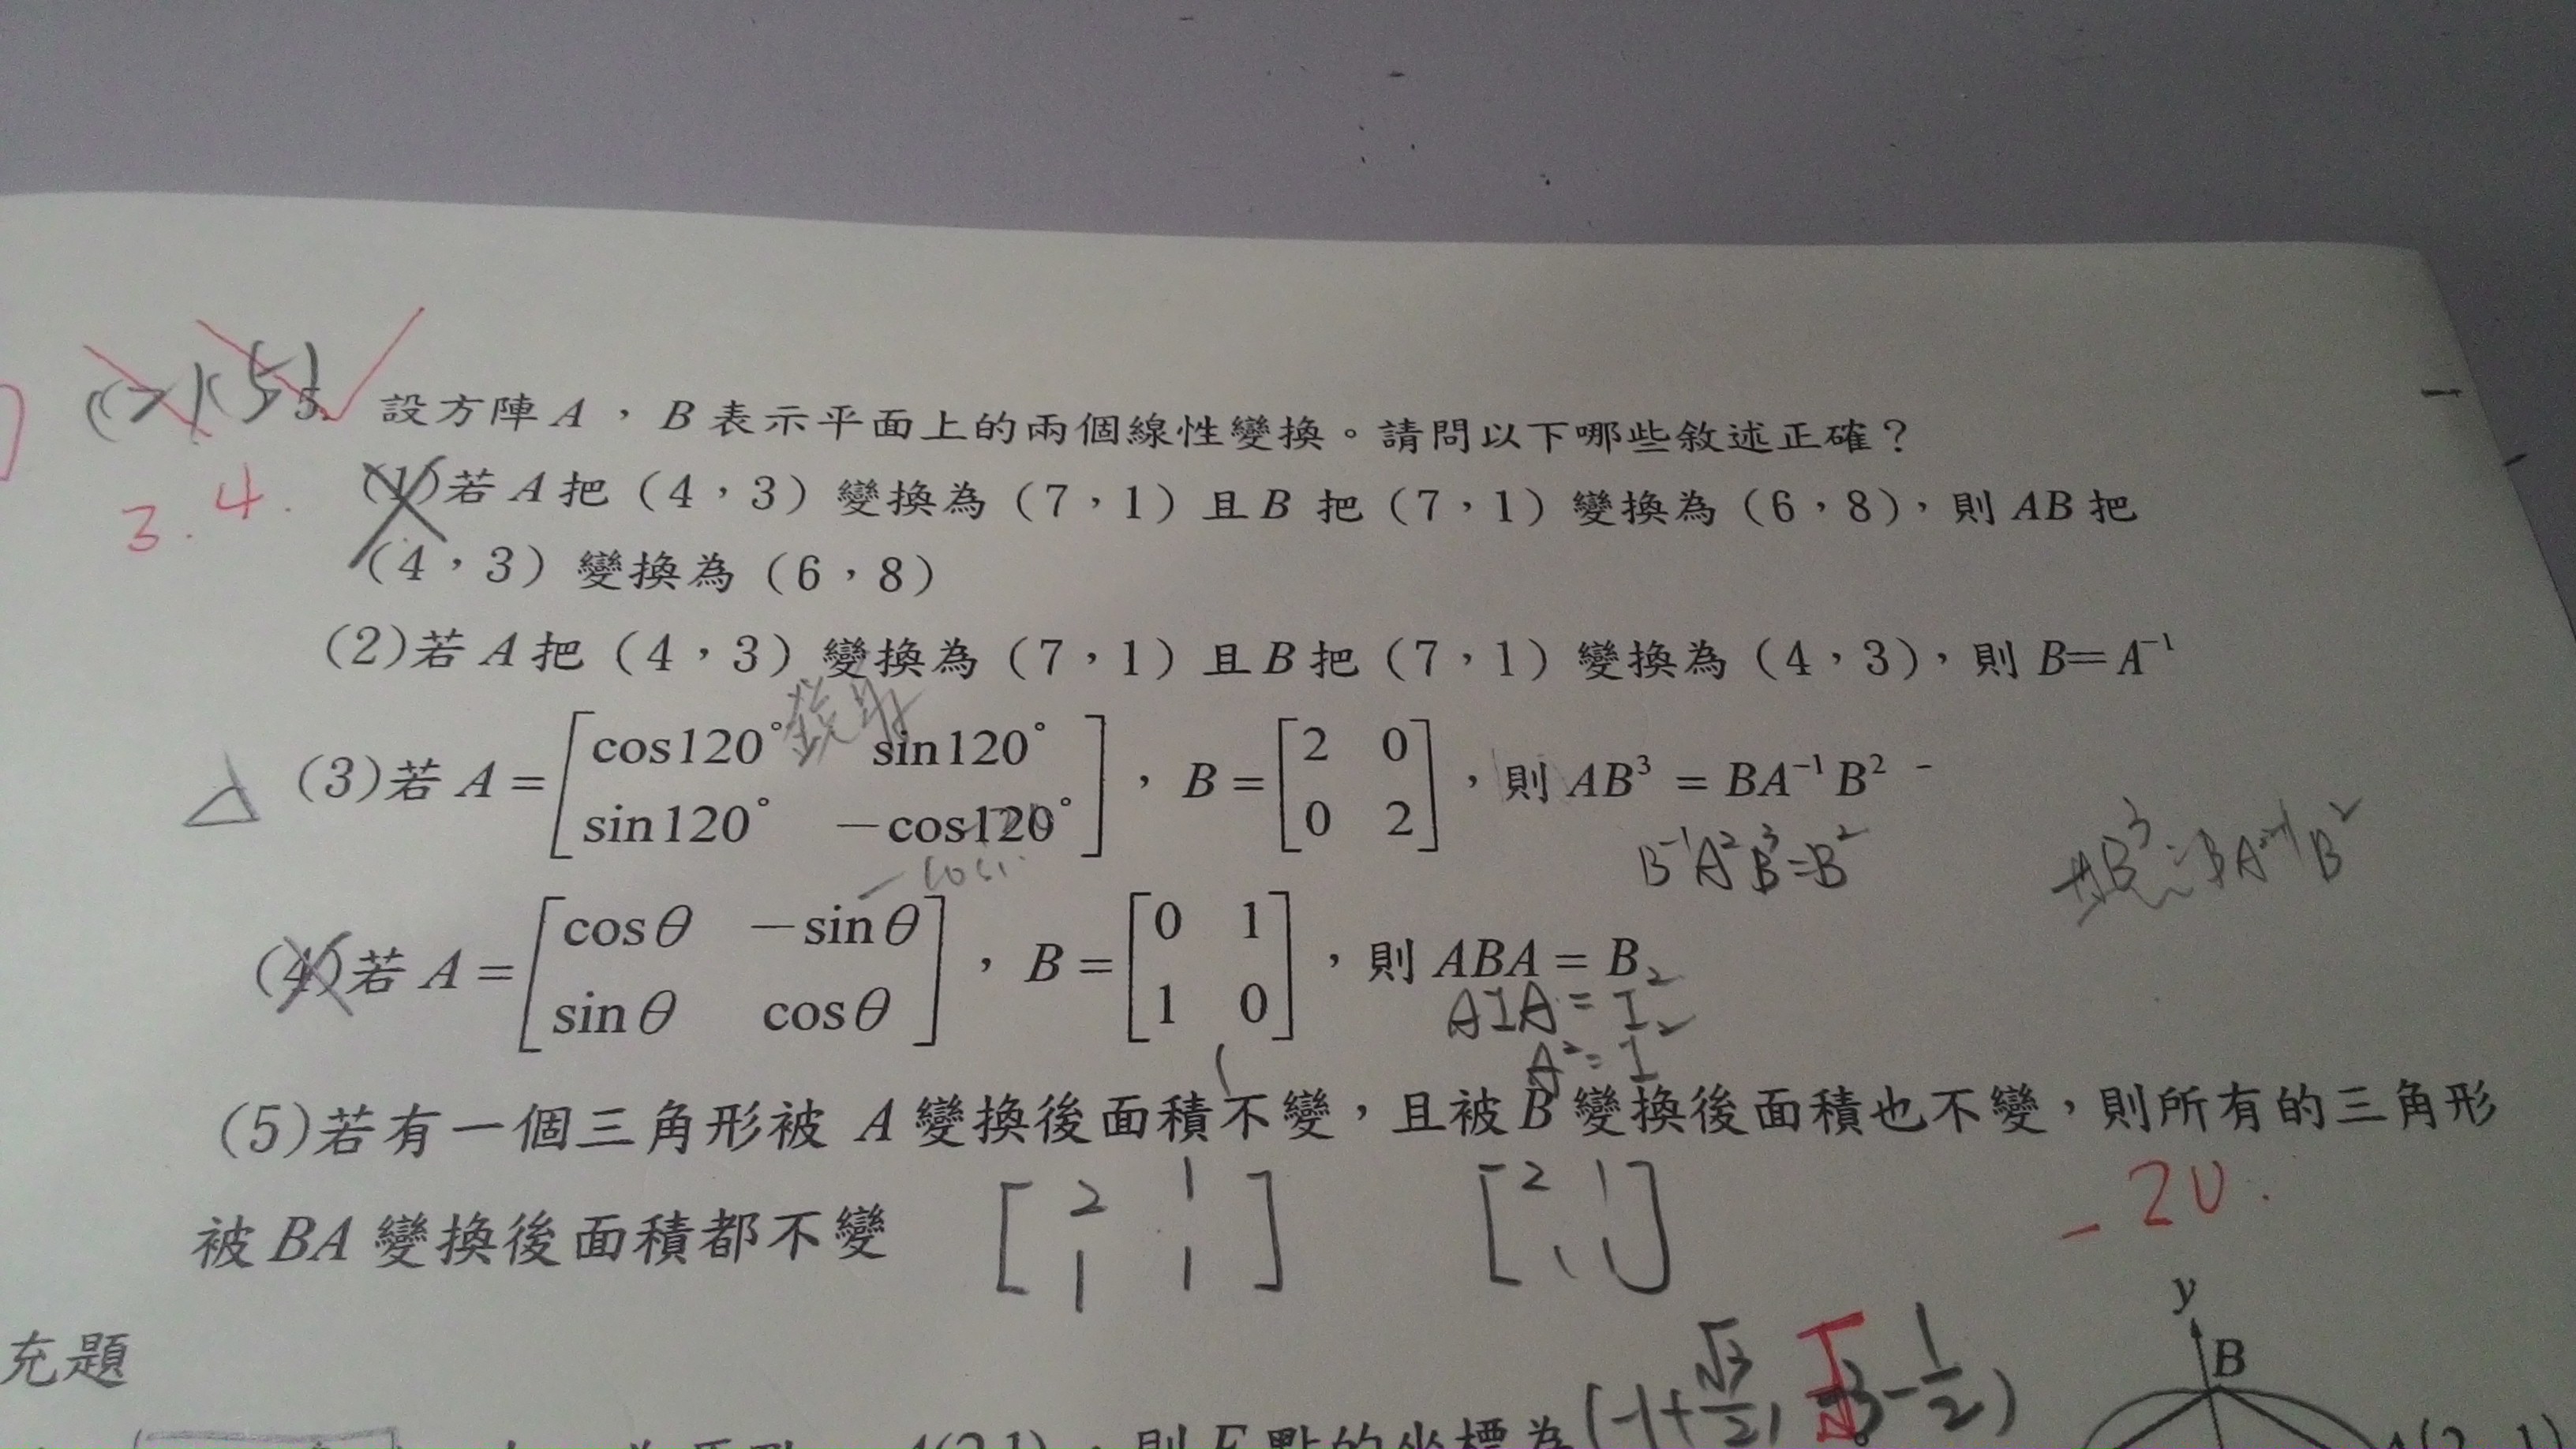 (2)(5)
5. 設方陣A，B表示平面上的兩個線性變換。請問以下哪些敘述正確？
3. 4.
(1)若A把（4，3）變換為（7，1）且B把（7，1）變換為（6，8），則AB把
（4，3）變換為（6，8）
(2)若A把（4，3）變換為（7，1）且B把（7，1）變換為（4，3），則B=A⁻¹
鏡射
(3)若A=[cos120° sin120° ; sin120° −cos120°]，B=[2 0 ; 0 2]，則AB³=BA⁻¹B²
B⁻¹A²B³=B²
AB³=BA⁻¹B²
(4)若A=[cosθ −sinθ ; sinθ cosθ]，B=[0 1 ; 1 0]，則ABA=B
AIA=I²
A²=I²
(5)若有一個三角形被A變換後面積不變，且被B變換後面積也不變，則所有的三角形
被BA變換後面積都不變
[2 1 ; 1 1]
[2 1 ; 1 1]
-20.
充題
y
B
則F點的坐標為